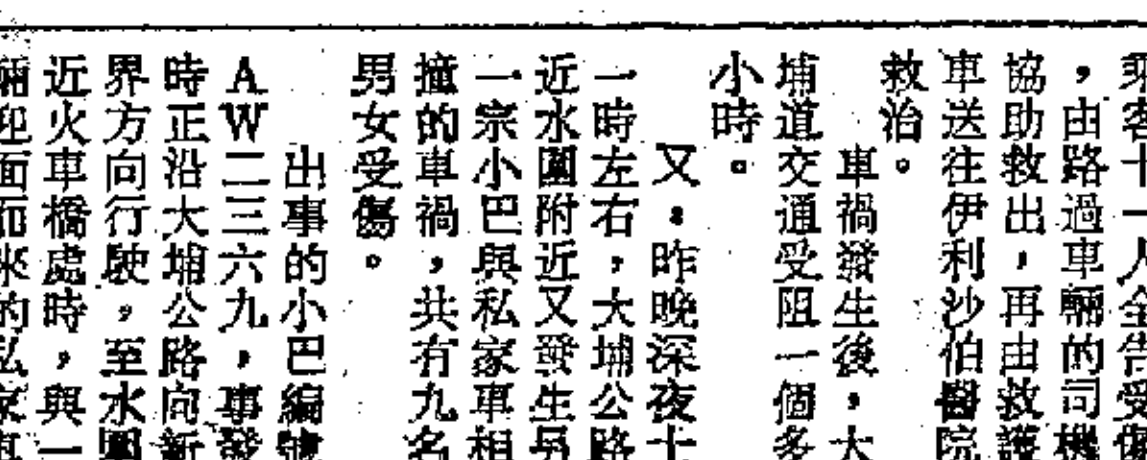 乘客十一人全告受傷
，由路過車輛的司機
協助救出，再由救護
車送往伊利沙伯醫院
救治。
車禍發生後，大
埔道交通受阻一個多
小時。
又：昨晚深夜十
一時左右，大埔公路
近水圍附近又發生另
一宗小巴與私家車相
撞的車禍，共有九名
男女受傷。
出事的小巴編號
AW二三六九，事發
時正沿大埔公路向新
界方向行駛，至水圍
近火車橋處時，與一
輛迎面而來的私家車